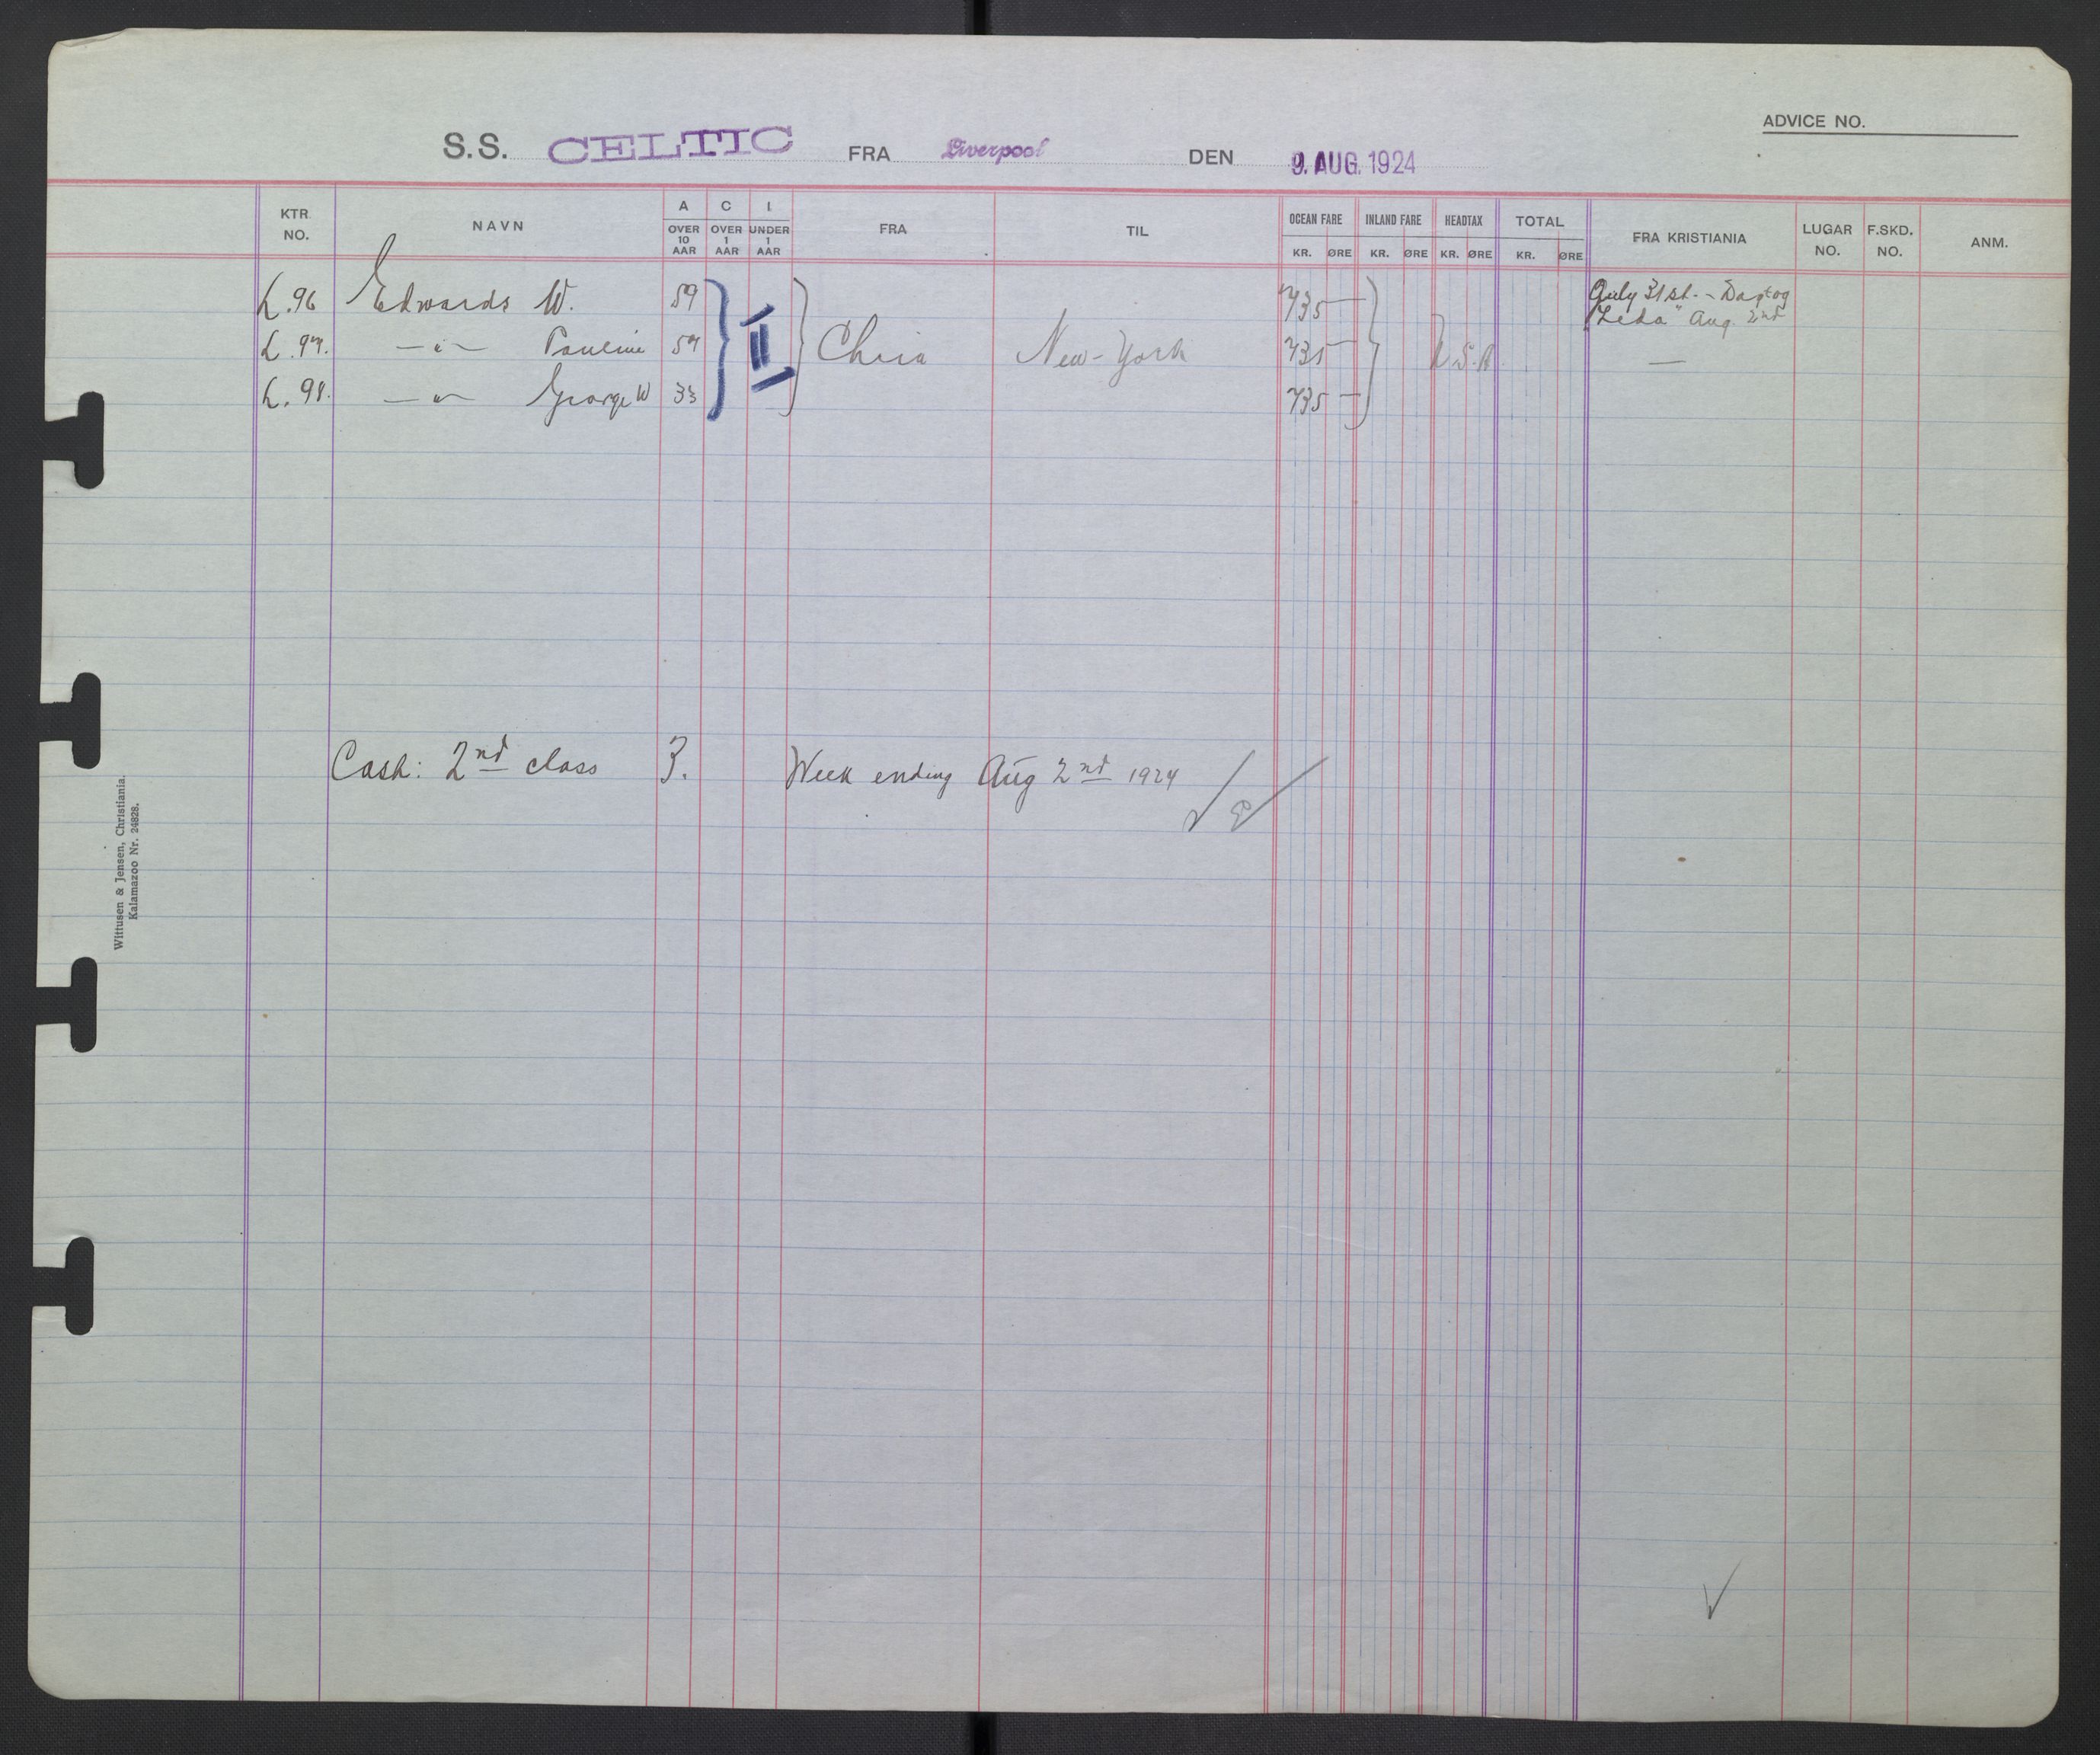 ADVICE NO.
S.S. CELTIC FRA Liverpool DEN 9. AUG. 1924
KTR. NO. NAVN A OVER 10 AAR C OVER 1 AAR I UNDER 1 AAR FRA TIL OCEAN FARE KR. ØRE INLAND FARE KR. ØRE HEADTAX KR. ØRE TOTAL KR. ØRE FRA KRISTIANIA LUGAR NO. F.SKD. NO. ANM.
L. 96 Edwards W. 59 735 — July 31st. - Dagtog
"Leda" Aug. 2nd
L. 97. — " — Pauline II Chria New-York 735 — U.S.A. —
L. 98. — " — George W 33 735 —
Cash: 2nd class 3. Week ending Aug 2nd 1924
Wittusen & Jensen, Christiania.
Kalamazoo Nr. 24828.